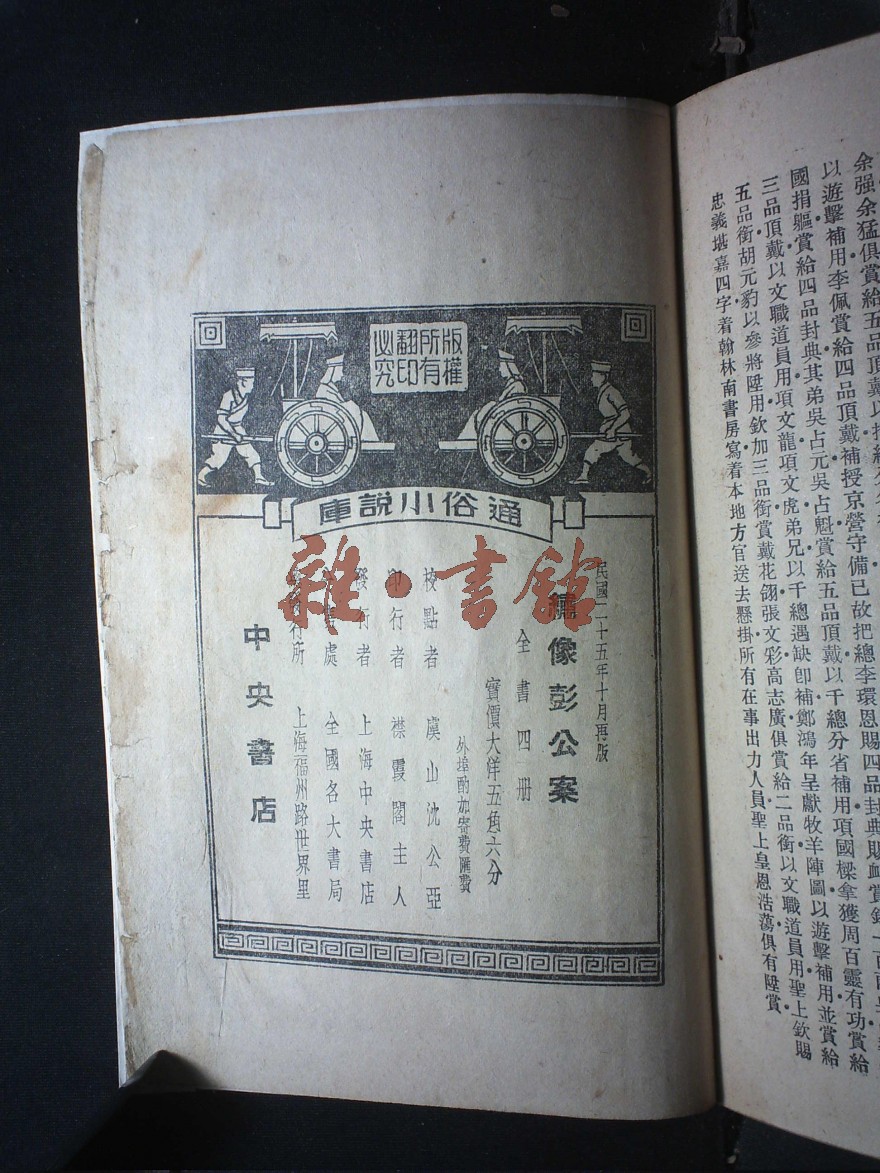 余强余猛俱賞給五品頂戴以
以遊擊補用李佩賞給四品頂戴補授京營守備已故把總李環恩賜四品封典賜
國捐軀賞給四品封典其弟吳占元吳占魁賞給五品頂戴以千總分省補用項國樑拿獲周百靈有功賞給
三品頂戴以文職道員用項文龍項文虎弟兄以千總遇缺卽補鄭鴻年呈獻牧羊陣圖以遊擊補用並賞給
五品銜胡元豹以參將陞用欽加三品銜賞戴花翎張文彩高志廣俱賞給二品銜以文職道員用聖上欽賜
忠義堪嘉四字着翰林南書房寫着本地方官送去懸掛所有在事出力人員聖上皇恩浩蕩俱有陞賞
版權
所有
翻印
必究
通俗小說庫
民國二十五年十月再版
繡像彭公案
全書四册
實價大洋五角六分
外埠酌加寄費匯費
校點者 虞山沈公亞
印行者 襟霞閣主人
發行者 上海中央書店
處 全國各大書局
行所 上海福州路世界里
中央書店
雜·書館